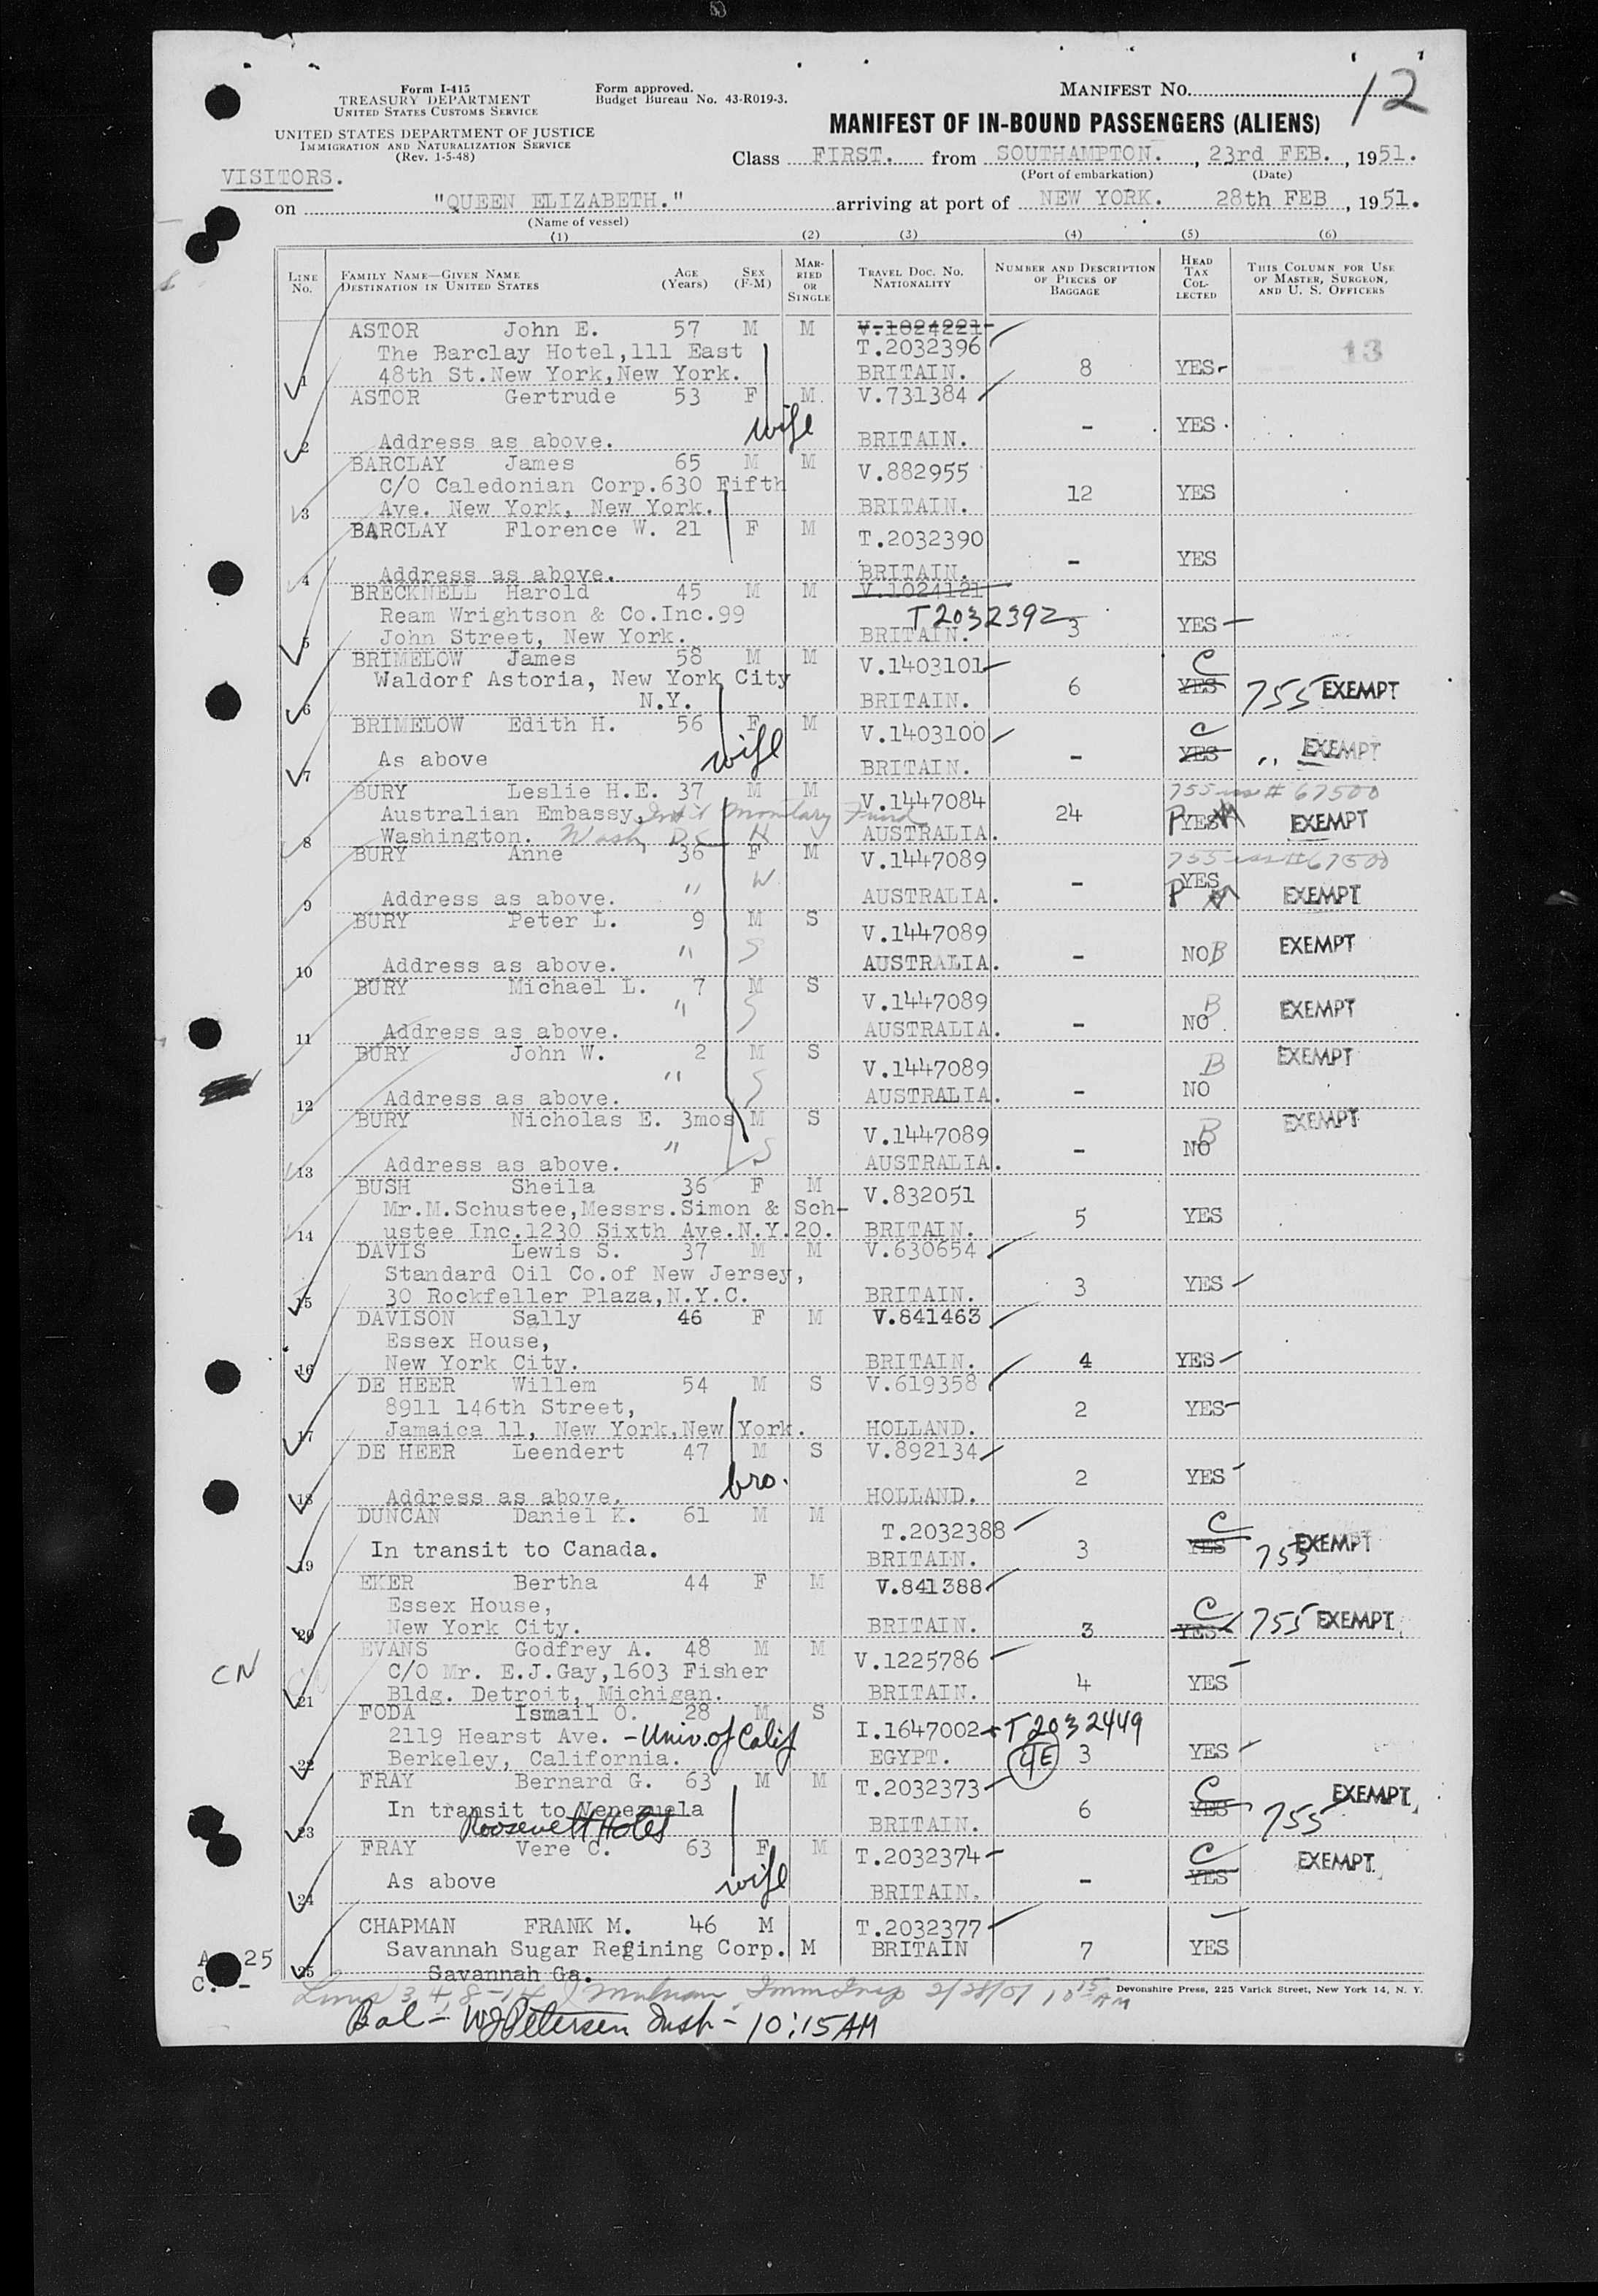 Form I-415
TREASURY DEPARTMENT
UNITED STATES CUSTOMS SERVICE
UNITED STATES DEPARTMENT OF JUSTICE
IMMIGRATION AND NATURALIZATION SERVICE
(Rev. 1-5-48)
Form approved.
Budget Bureau No. 43-R019-3.
MANIFEST No. 12
MANIFEST OF IN-BOUND PASSENGERS (ALIENS)
Class FIRST. from SOUTHAMPTON. , 23rd FEB. , 1951.
(Port of embarkation) (Date)
VISITORS.
on "QUEEN ELIZABETH." arriving at port of NEW YORK. 28th FEB , 1951.
(Name of vessel)
(1) (2) (3) (4) (5) (6)
LINE No. FAMILY NAME—GIVEN NAME DESTINATION IN UNITED STATES AGE (Years) SEX (F-M) MARRIED OR SINGLE TRAVEL DOC. NO. NATIONALITY NUMBER AND DESCRIPTION OF PIECES OF BAGGAGE HEAD TAX COLLECTED THIS COLUMN FOR USE OF MASTER, SURGEON, AND U. S. OFFICERS
ASTOR John E. 57 M M V.1024221
The Barclay Hotel,111 East T.2032396 13
1 48th St.New York,New York. BRITAIN. 8 YES
ASTOR Gertrude 53 F M. V.731384
wife
2 Address as above. BRITAIN. - YES
BARCLAY James 65 M M V.882955
C/O Caledonian Corp.630 Fifth
3 Ave. New York, New York. BRITAIN. 12 YES
BARCLAY Florence W. 21 F M T.2032390
4 Address as above. BRITAIN. - YES
BRECKNELL Harold 45 M M V.1024121
Ream Wrightson & Co.Inc.99 T2032392
5 John Street, New York. BRITAIN. 3 YES
BRIMELOW James 58 M M V.1403101 C
Waldorf Astoria, New York City
6 N.Y. BRITAIN. 6 YES 755 EXEMPT
BRIMELOW Edith H. 56 F M V.1403100 C
wife
7 As above BRITAIN. - YES " EXEMPT
BURY Leslie H.E. 37 M M V.1447084 755 # 67500
Australian Embassy, Int'l Monetary Fund
8 Washington. Wash, DC H AUSTRALIA. 24 P YES EXEMPT
BURY Anne 36 F M V.1447089 755 #67500
9 Address as above. " W AUSTRALIA. - P YES EXEMPT
BURY Peter L. 9 M S V.1447089
10 Address as above. " S AUSTRALIA. - NO B EXEMPT
BURY Michael L. 7 M S V.1447089
11 Address as above. " S AUSTRALIA. - NO B EXEMPT
BURY John W. 2 M S V.1447089
12 Address as above. " S AUSTRALIA. - NO B EXEMPT
BURY Nicholas E. 3mos M S V.1447089
13 Address as above. " S AUSTRALIA. - NO B EXEMPT
BUSH Sheila 36 F M V.832051
Mr.M.Schustee,Messrs.Simon & Sch-
14 ustee Inc.1230 Sixth Ave.N.Y.20. BRITAIN. 5 YES
DAVIS Lewis S. 37 M M V.630654
Standard Oil Co.of New Jersey,
15 30 Rockfeller Plaza,N.Y.C. BRITAIN. 3 YES
DAVISON Sally 46 F M V.841463
Essex House,
16 New York City. BRITAIN. 4 YES
DE HEER Willem 54 M S V.619358
8911 146th Street,
17 Jamaica 11, New York,New York. HOLLAND. 2 YES
DE HEER Leendert 47 M S V.892134
bro.
18 Address as above. HOLLAND. 2 YES
DUNCAN Daniel K. 61 M M T.2032388 C
19 In transit to Canada. BRITAIN. 3 YES 755 EXEMPT
EKER Bertha 44 F M V.841388
Essex House, C
20 New York City. BRITAIN. 3 YES 755 EXEMPT
EVANS Godfrey A. 48 M M V.1225786
CN C/O Mr. E.J.Gay,1603 Fisher
21 Bldg. Detroit, Michigan. BRITAIN. 4 YES
FODA Ismail O. 28 M S I.1647002 + T2032449
2119 Hearst Ave. - Univ. of Calif
22 Berkeley, California. EGYPT. 4E 3 YES
FRAY Bernard G. 63 M M T.2032373 C EXEMPT
In transit to Venezuela 6 YES 755
23 Roosevelt Hotel BRITAIN.
FRAY Vere C. 63 F M T.2032374 C EXEMPT
24 As above wife BRITAIN. - YES
CHAPMAN FRANK M. 46 M T.2032377
A. 25 Savannah Sugar Refining Corp. M BRITAIN 7 YES
C. - 25 Savannah Ga.
Devonshire Press, 225 Varick Street, New York 14, N. Y.
Lines 3, 4, 8-14 Imm Insp 2/28/51 10 15 AM
Bal - WJPetersen Insp - 10:15AM